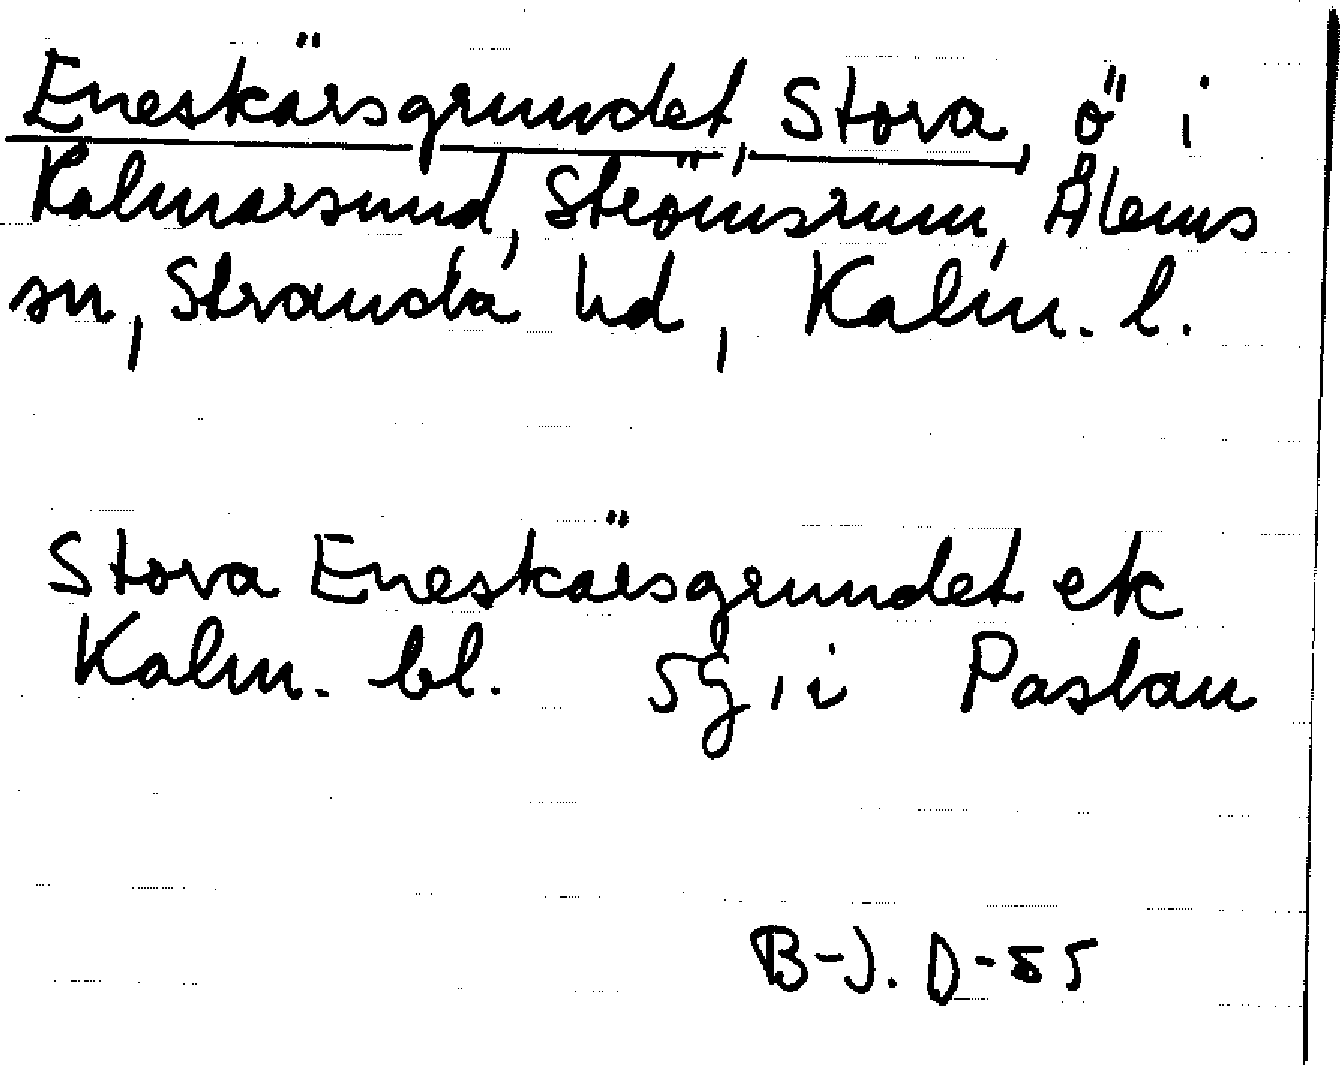 Eneskärsgrundet, Stora, ö i
Kalmarsund, Strömsrum, Ålems
sn, Stranda hd, Kalm. l.
Stora Eneskärsgrundet ek
Kalm. bl. 5g, i Paslau
B-J. D-55